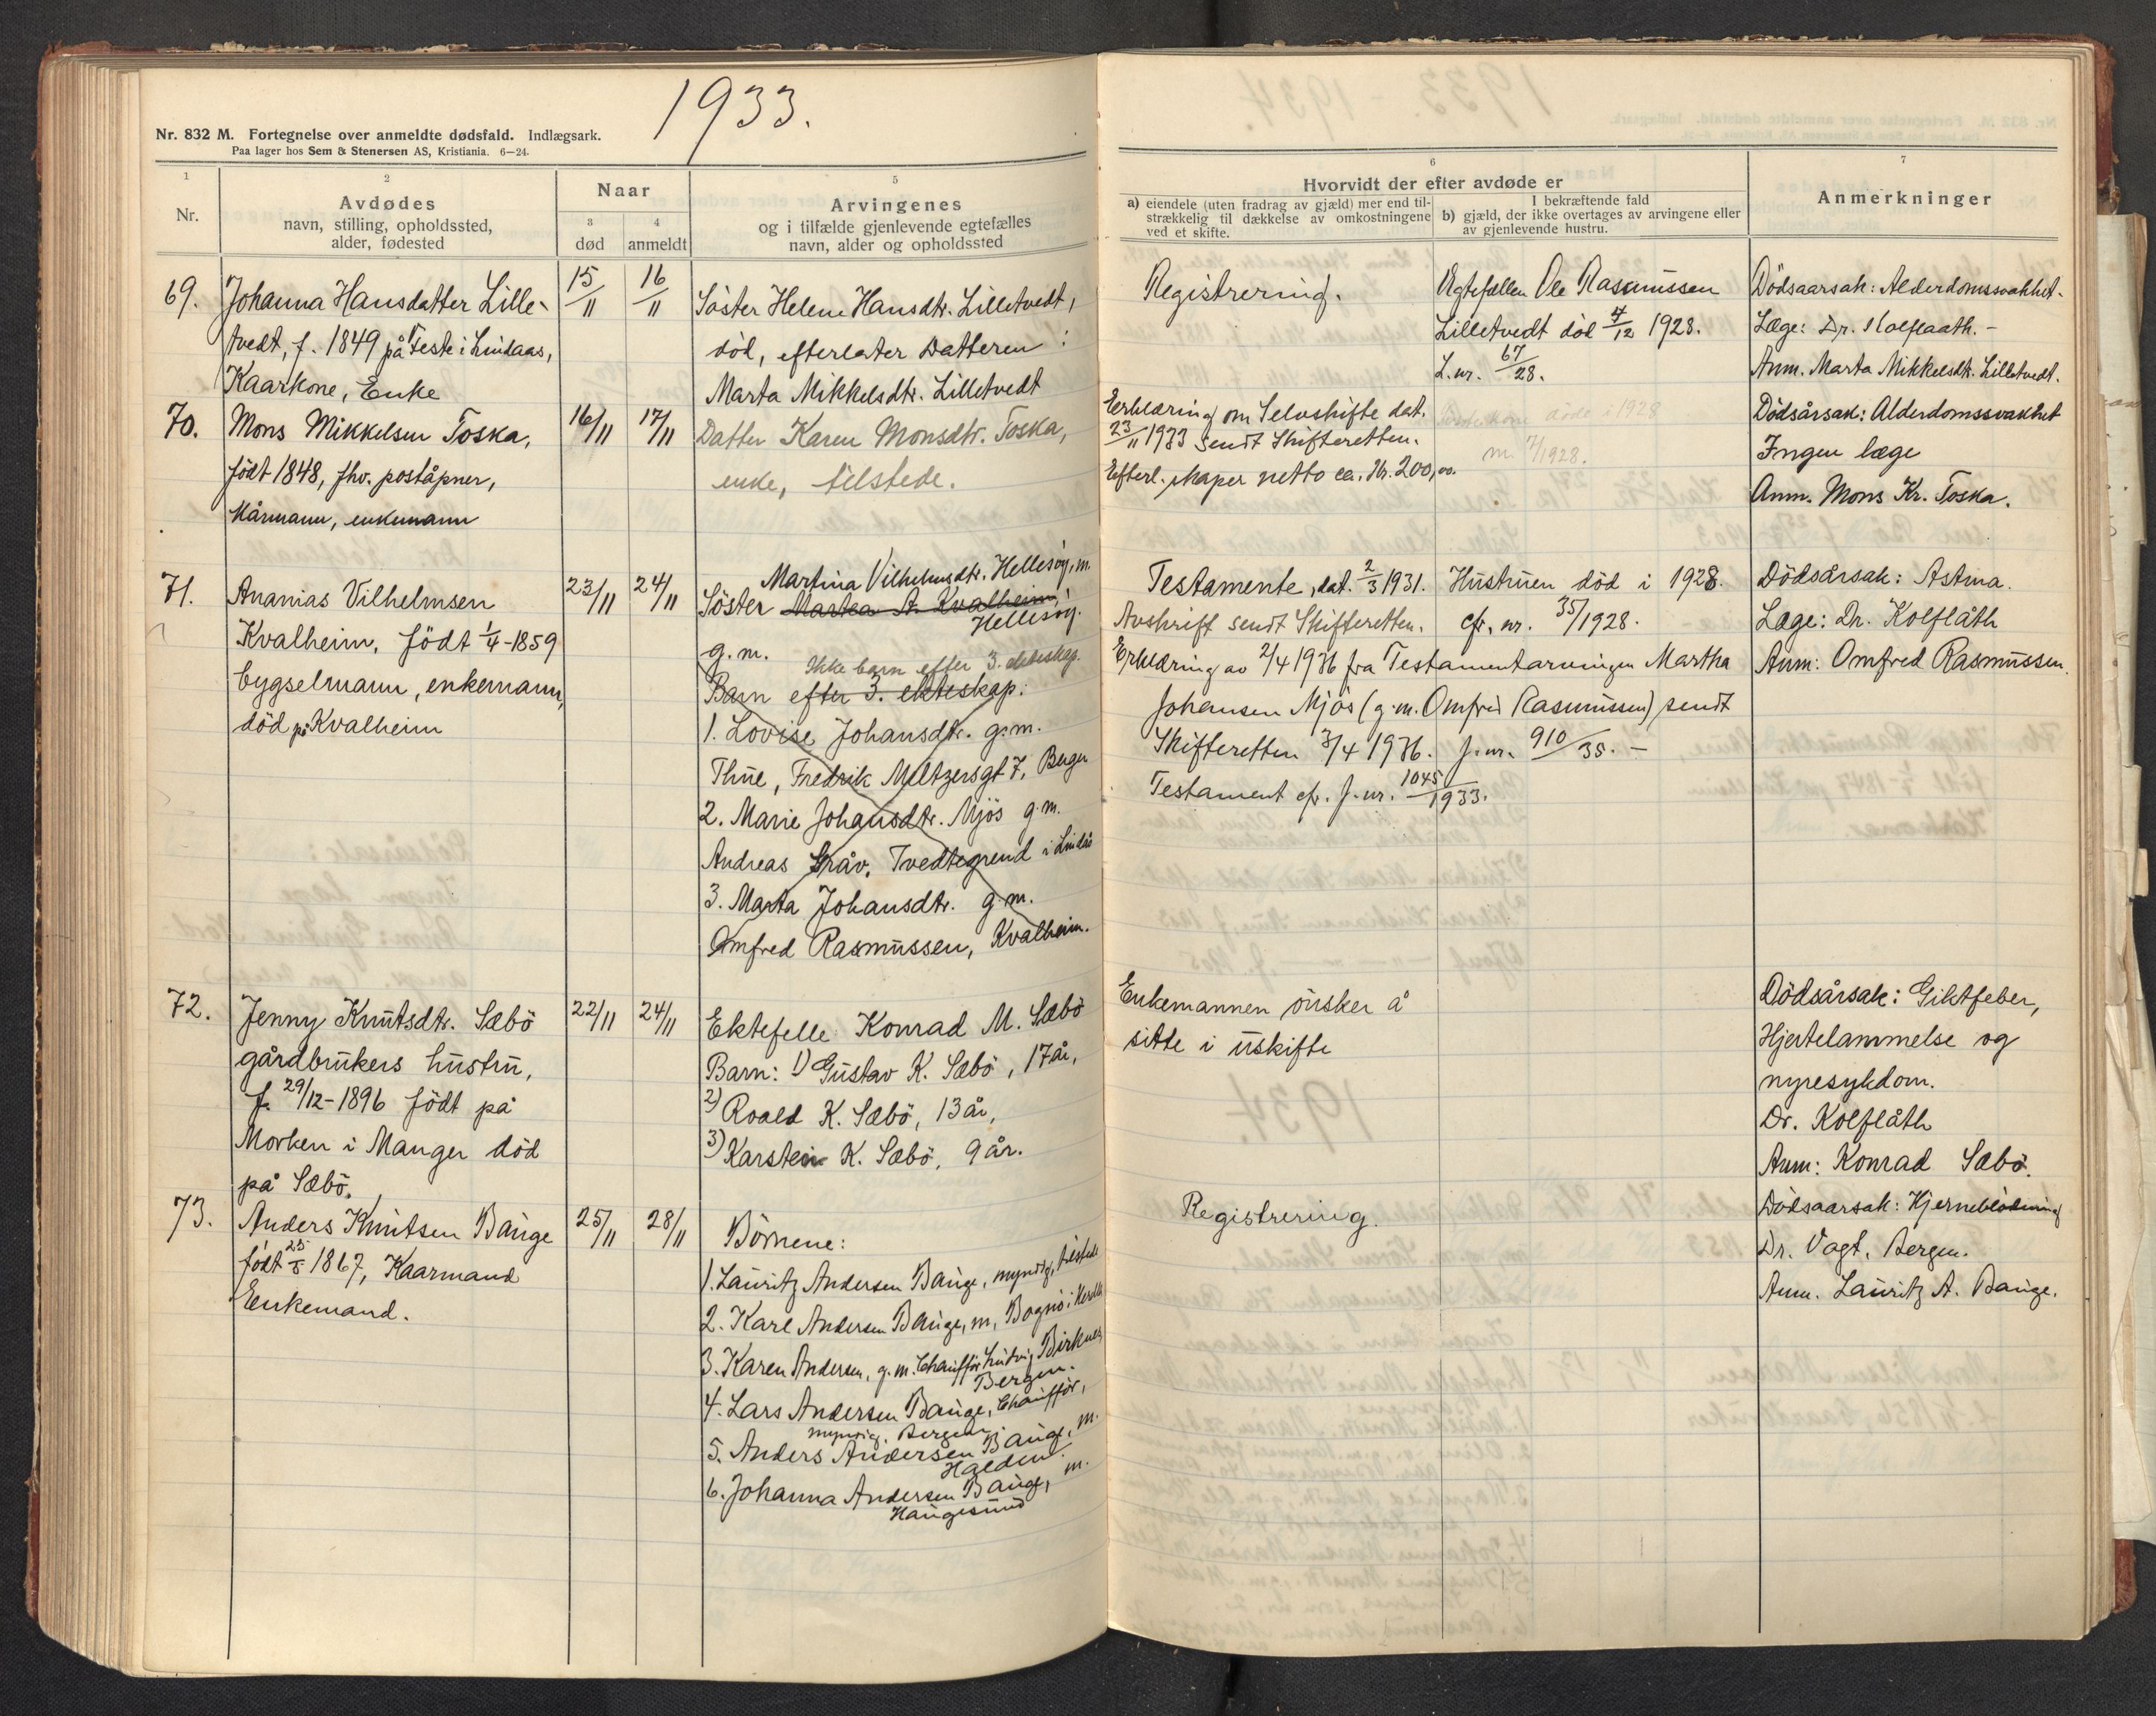 1933.
Nr. 832 M. Fortegnelse over anmeldte dødsfald. Indlægsark.
Paa lager hos Sem & Stenersen AS, Kristiania. 6—24.
1
Nr.
2
Avdødes
navn, stilling, opholdssted,
alder, fødested
Naar
3
død
4
anmeldt
5
Arvingenes
og i tilfælde gjenlevende egtefælles
navn, alder og opholdssted
6
Hvorvidt der efter avdøde er
a) eiendele (uten fradrag av gjæld) mer end til-
strækkelig til dækkelse av omkostningene
ved et skifte.
I bekræftende fald
b) gjæld, der ikke overtages av arvingene eller
av gjenlevende hustru.
7
Anmerkninger
69.
Johanna Hansdatter Lille-
tvedt, f. 1849 på Feste i Lindaas,
Kaarkone, Enke
15/11
16/11
Söster Helene Hansdtr. Lilletvedt,
död, efterlater Datteren :
Marta Mikkelsdtr. Lilletvedt
Registrering.
Egtefællen Ole Rasmussen
Lilletvedt död 4/12 1928.
L.nr. 67/28.
Dödsaarsak: Alderdomssvakhet.
Læge: Dr. Kolflaath. -
Anm. Marta Mikkelsdtr. Lilletvedt.
70.
Mons Mikkelsen Toska,
født 1848, fhv. poståpner,
Kårmann, enkemann
16/11
17/11
Datter Karen Monsdtr. Toska,
enke, tilstede.
Erklæring om Selvskifte dat.
23/11 1933 sendt Skifteretten.
Efterl. skaper netto ca. Kr. 200,00.
døde i 1928
7/1928.
Dödsårsak: Alderdomssvakhet
Ingen læge
Anm. Mons Kr. Toska.
71.
Ananias Vilhelmsen
Kvalheim, født 1/4-1859
bygselmann, enkemann,
död på Kvalheim
23/11
24/11
Martina Vilhelmsdtr. Hellesöy, m.
Söster Martea A. Kvalheim,
Hellesöy.
g.m.
Ikke barn efter 3. ekteskap.
Barn efter 3. ekteskap:
1. Lovise Johansdtr. g.m.
Thue, Fredrik Meltzersgt 7, Bergen
2. Marie Johansdtr. Mjös g.m.
Andreas Tvedtegrend i Lindås
3. Marta Johansdtr. g.m.
Omfred Rasmussen, Kvalheim.
Testamente, dat. 2/3 1931.
Avskrift sendt Skifteretten.
Hustruen död i 1928.
cfr. nr. 35/1928.
Erklæring av 2/4 1936 fra Testamentarvingen Martha
Johansen Mjös (g.m. Omfred Rasmussen) sendt
Skifteretten 3/4 1936. J.nr. 910/35. -
Testament cfr. J.nr. 1045/1933.
Dödsårsak: Astma.
Læge: Dr. Kolflåth
Anm: Omfred Rasmussen.
72.
Jenny Knutsdtr. Sæbö
gårdbrukers hustru,
f. 29/12-1896 född på
Morken i Manger död
på Sæbö.
22/11
24/11
Ektefelle Konrad M. Sæbö
Barn: 1) Gustav K. Sæbö, 17 år,
2) Roald K. Sæbö, 13 år,
3) Karstein K. Sæbö, 9 år.
Enkemannen önsker å
sitte i uskifte
Dödsårsak: Giktfeber,
Hjertelammelse og
nyresykdom.
Dr. Kolflåth
Anm: Konrad Sæbö.
73.
Anders Knutsen Bauge
født 25/5 1867, Kaarmand
Enkemand.
25/11
28/11
Börnene:
1. Lauritz Andersen Bauge, myndig, tilstede
2. Karl Andersen Bauge, m, Bognö i Herdla
3. Karen Andersen, g.m. Chaufför Ludvig Birknes
Bergen.
4. Lars Andersen Bauge, Chaufför,
myndig, Bergen.
5. Anders Andersen Bauge, m.
Halden.
6. Johanna Andersen Bauge, m.
Haugesund
Registrering.
Dödsaarsak: Hjerneblödning
Dr. Vogt, Bergen.
Anm. Lauritz A. Bauge.